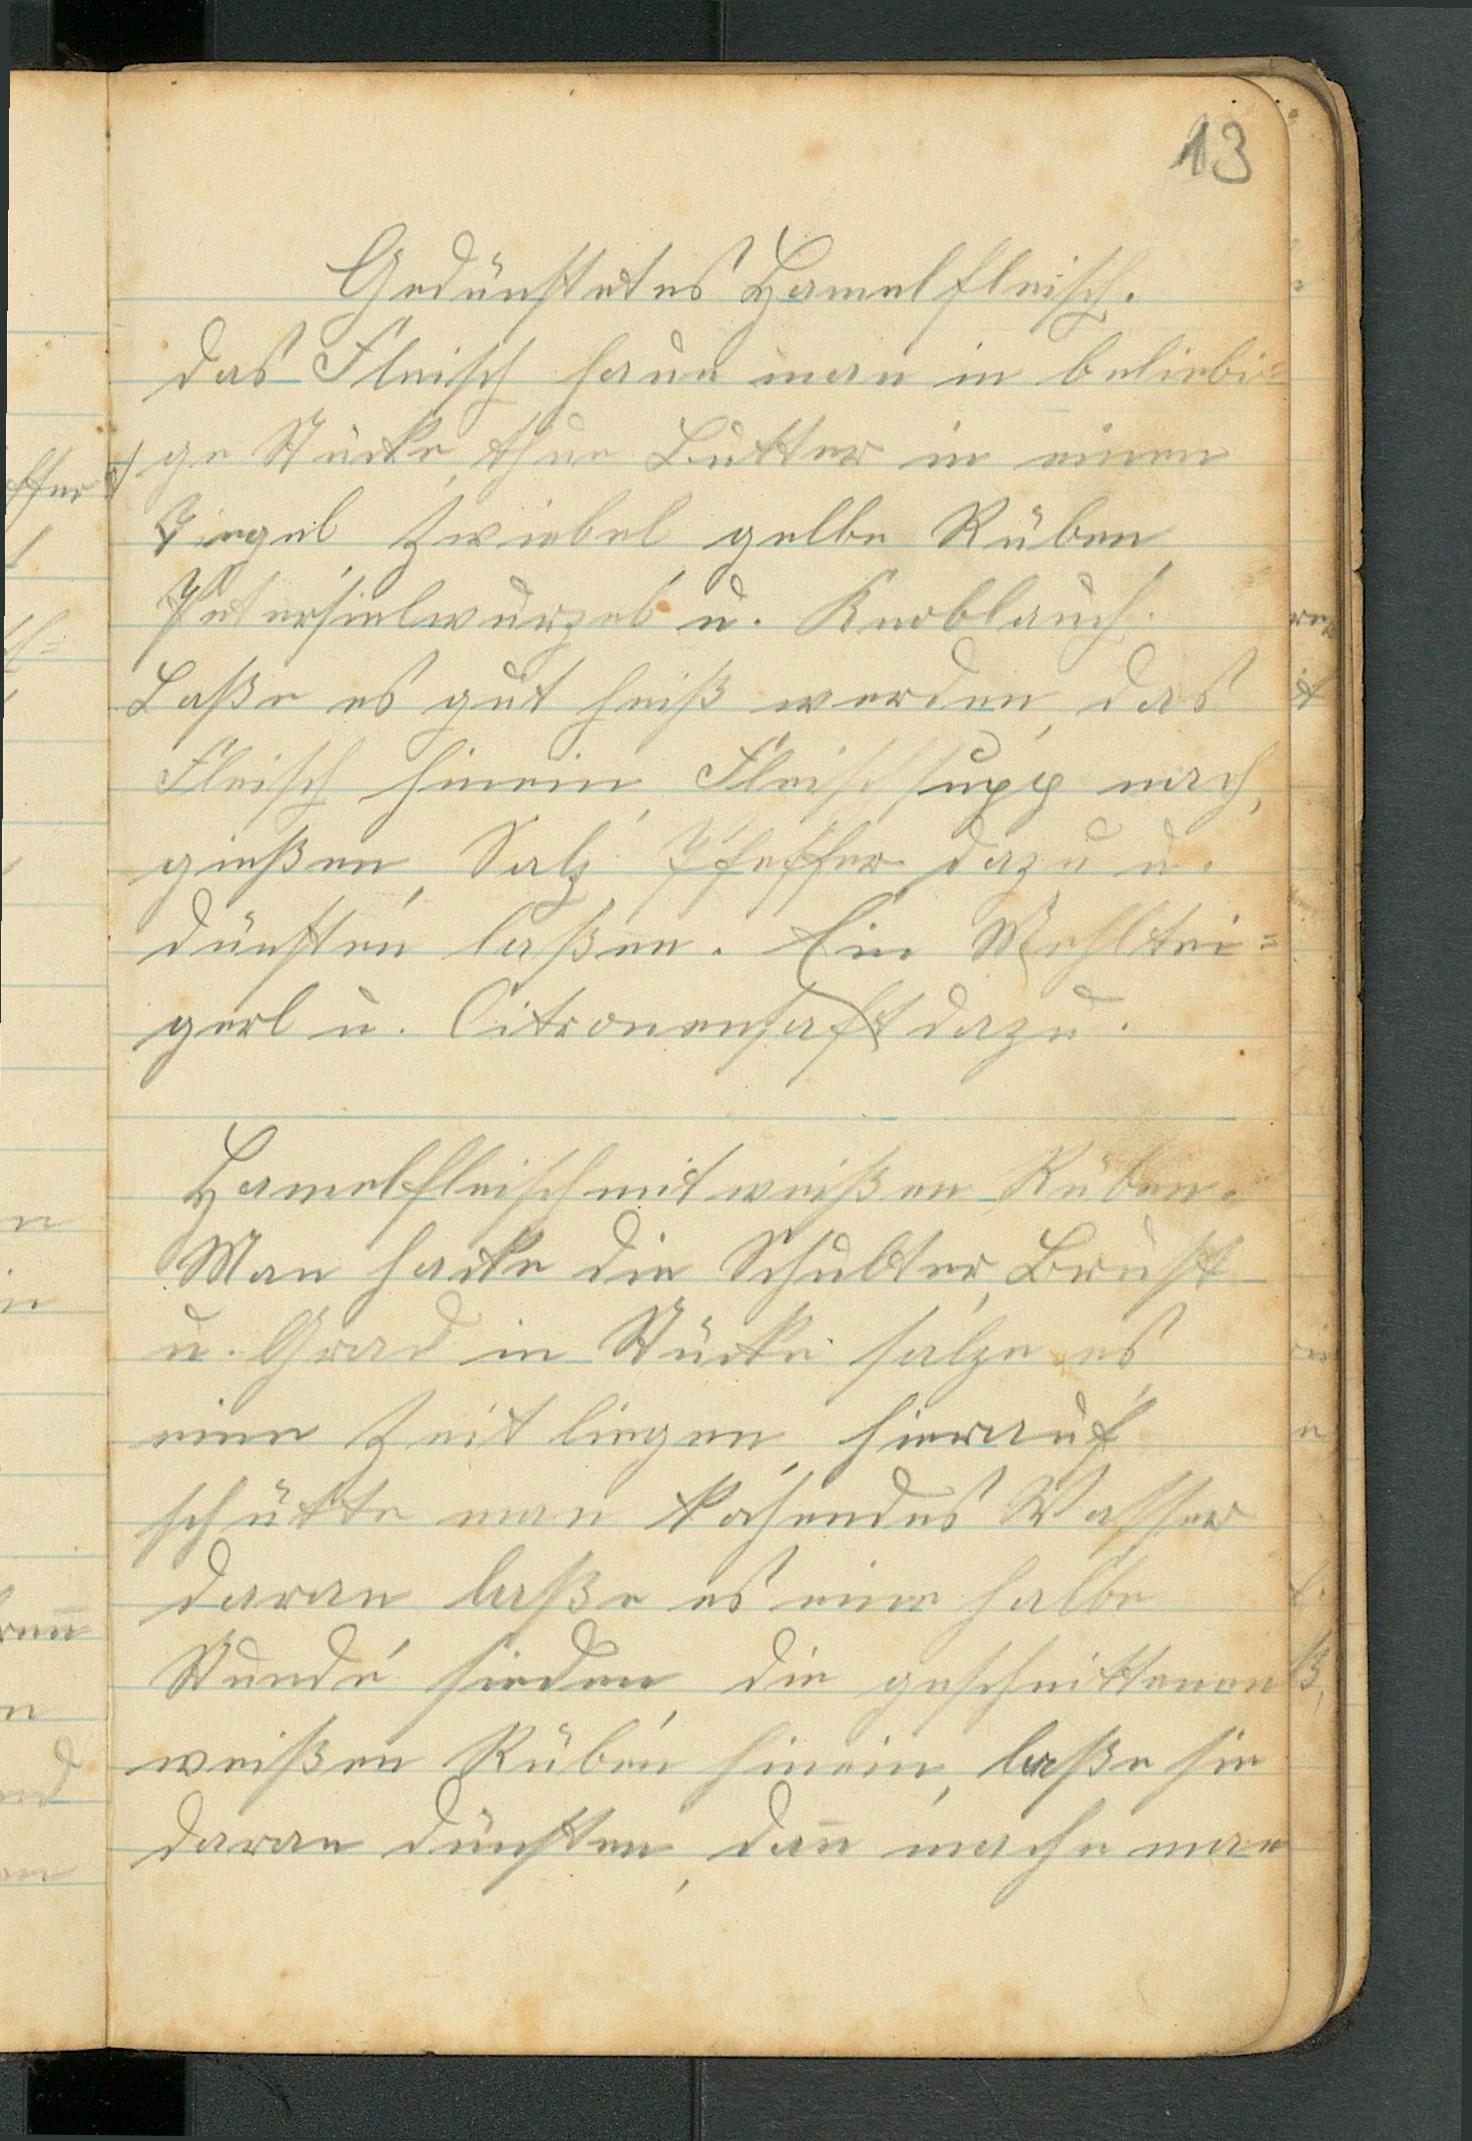 13
Gedünstetes Hamelfleisch.
Das Fleisch haue man in beliebi=
ge Stücke, thue Butter in einen
Tiegel Zwiebel gelbe Rüben,
Petersielwurzel u. Knoblauch.
Laße es gut heiß werden, das
Fleisch hinein, Fleischsupp nach,
gießen, Salz Pfeffer dazu u.
dünsten laßen. Ein Mehltei=
gerl u. Citronensaft dazu.
Hamelfleisch mit weißen Rüben.
Man hacke die Schulter, Brust
u. Grad in Stücke salze es,
eine Zeit liegen, hierauf
schütte man kochendes Wasser
daran laße es eine halbe
Stunde sieden, die geschnittenen
weißen Rüben hinein, laße sie
daran dünsten, dan̄ mache man